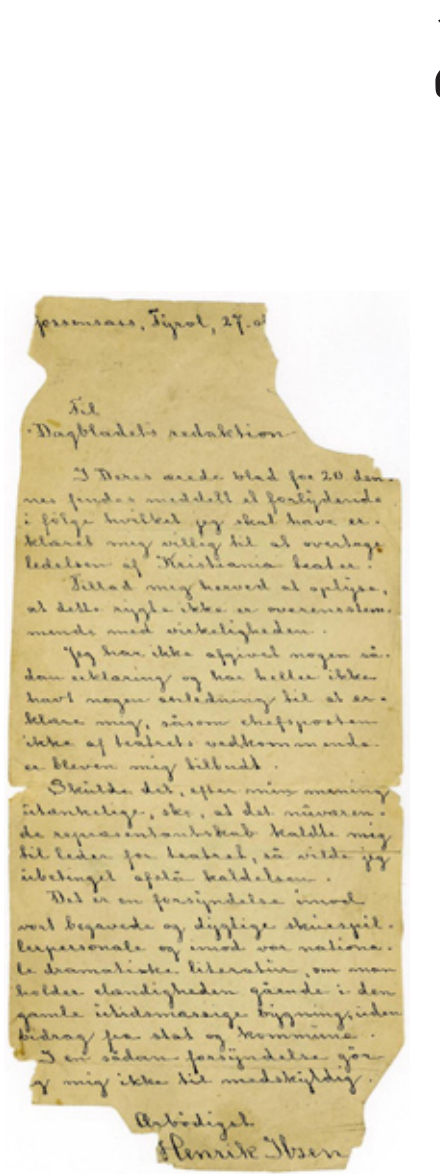 Gossensass, Tyrol, 27.
Til
Dagbladets redaktion.
I Deres ærede blad for 20 den-
nes findes meddelt et forlydende
i følge hvilket jeg skal have er-
klæret mig villig til at overtage
ledelsen af Kristiania teater.
Tillad mig herved at oplyse,
at dette rygte ikke er overensstem-
mende med virkeligheden.
Jeg har ikke afgivet nogen så-
dan erklæring og har heller ikke
havt nogen anledning til at er-
klære mig, såsom chefsposten
ikke af teatrets vedkommende
er bleven mig tilbudt.
Skulde det, efter min mening
utænkelige, ske, at det nuværen-
de repræsentantskab kaldte mig
til leder for teatret, så vilde jeg
ubetinget afslå kaldelsen.
Det er en forsyndelse imod
vort begavede og dygtige skuespil-
lerpersonale og imod vor nationa-
le dramatiske literatur, om man
holder elendigheden gående i den
gamle utidsmæssige bygning, uden
bidrag fra stat og kommune.
I en sådan forsyndelse gör
g mig ikke til medskyldig.
Ærbödigst
Henrik Ibsen